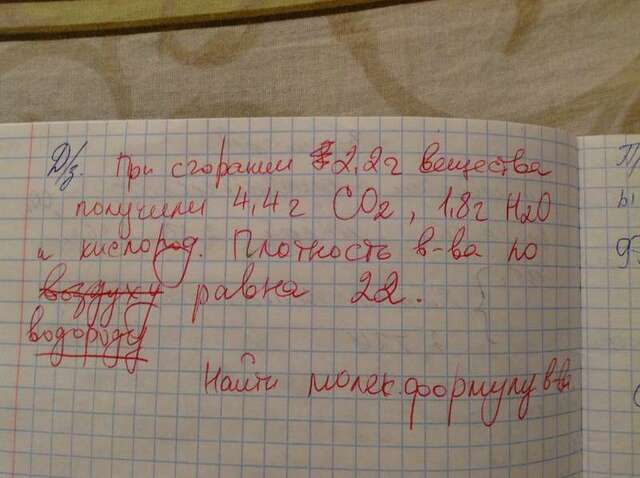 Д/з. При сгорании 2,2г вещества
получили 4,4г CO2, 1,8г H2O
и кислород. Плотность в-ва по
воздуху равна 22.
водороду
Найти молек. формулу в-ва